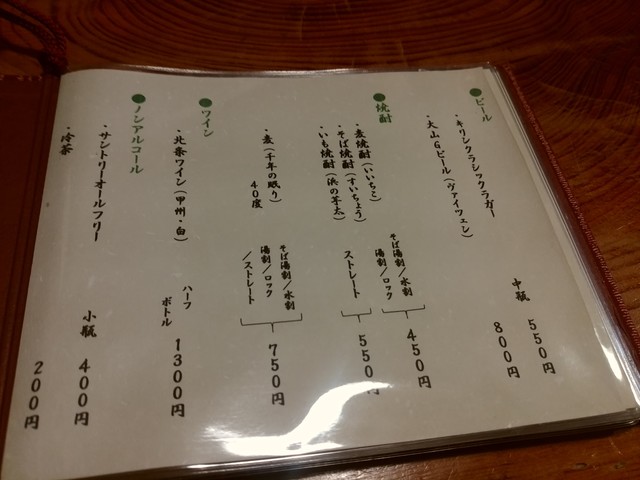 ●ビール
・キリンクラシックラガー 中瓶 550円
・大山Gビール(ヴァイツェン) 800円
●焼酎
・麦焼酎(いいちこ)
・そば焼酎(すいちょう)
・いも焼酎(浜の芋太)
そば湯割/水割
湯割/ロック
450円
ストレート
550円
・麦(千年の眠り)
40度
そば湯割/水割
湯割/ロック
/ストレート
750円
●ワイン
・北条ワイン(甲州・白) ハーフ
ボトル 1300円
●ノンアルコール
・サントリーオールフリー 小瓶 400円
・冷茶 200円